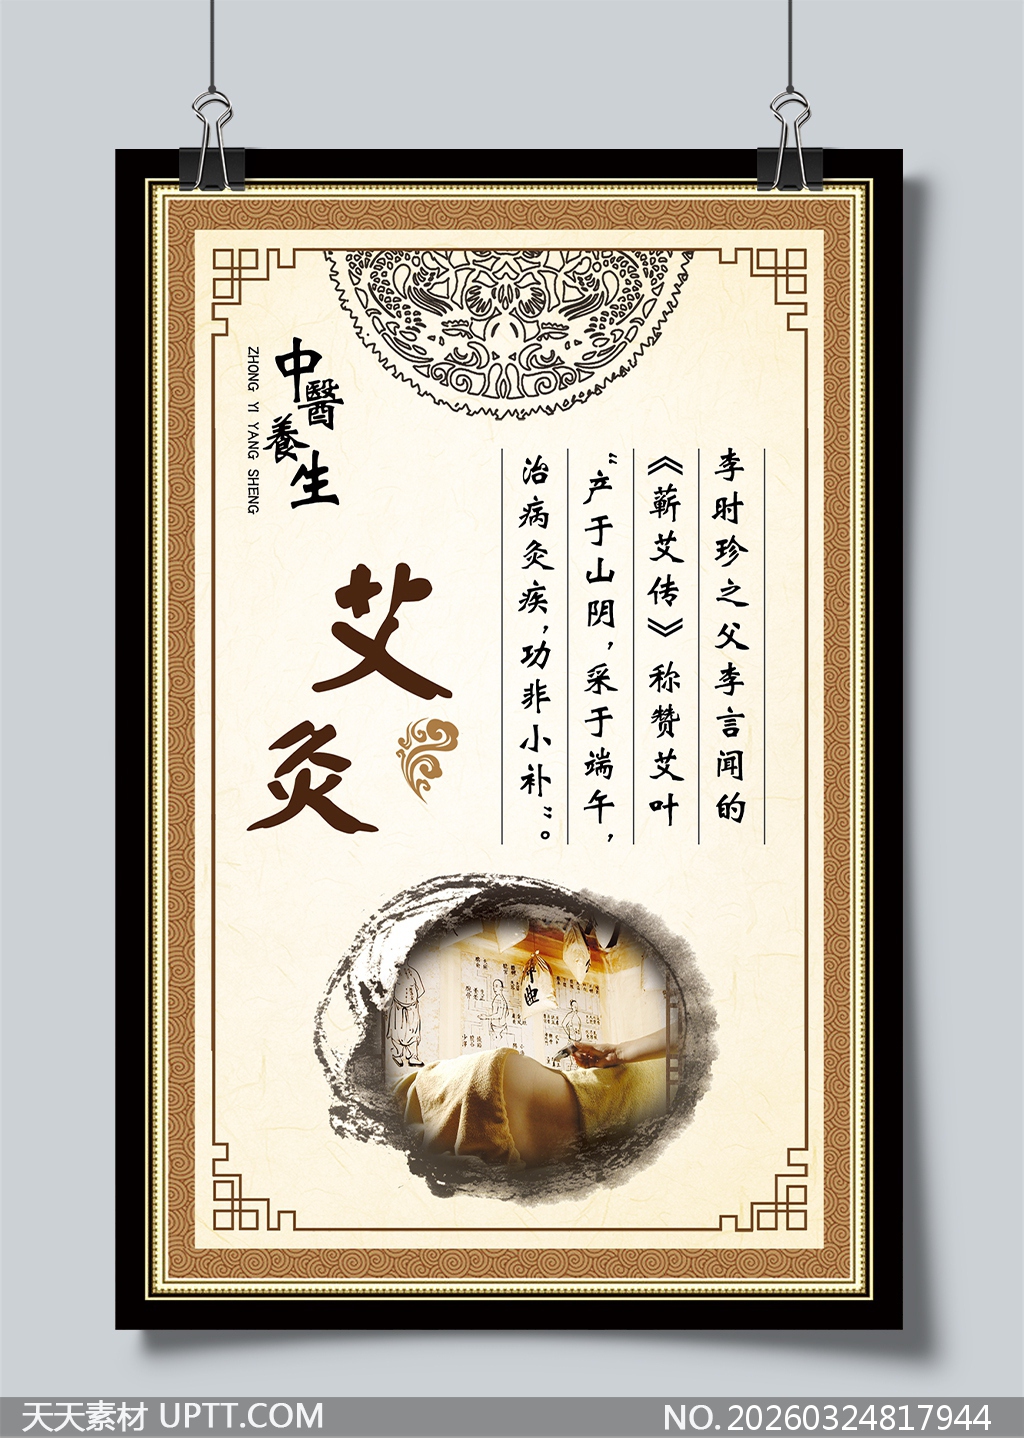 中醫養生
ZHONG YI YANG SHENG
艾灸
李时珍之父李言闻的
《蕲艾传》称赞艾叶
“产于山阴，采于端午，
治病灸疾，功非小补”。
天天素材 UPTT.COM
NO.20260324817944